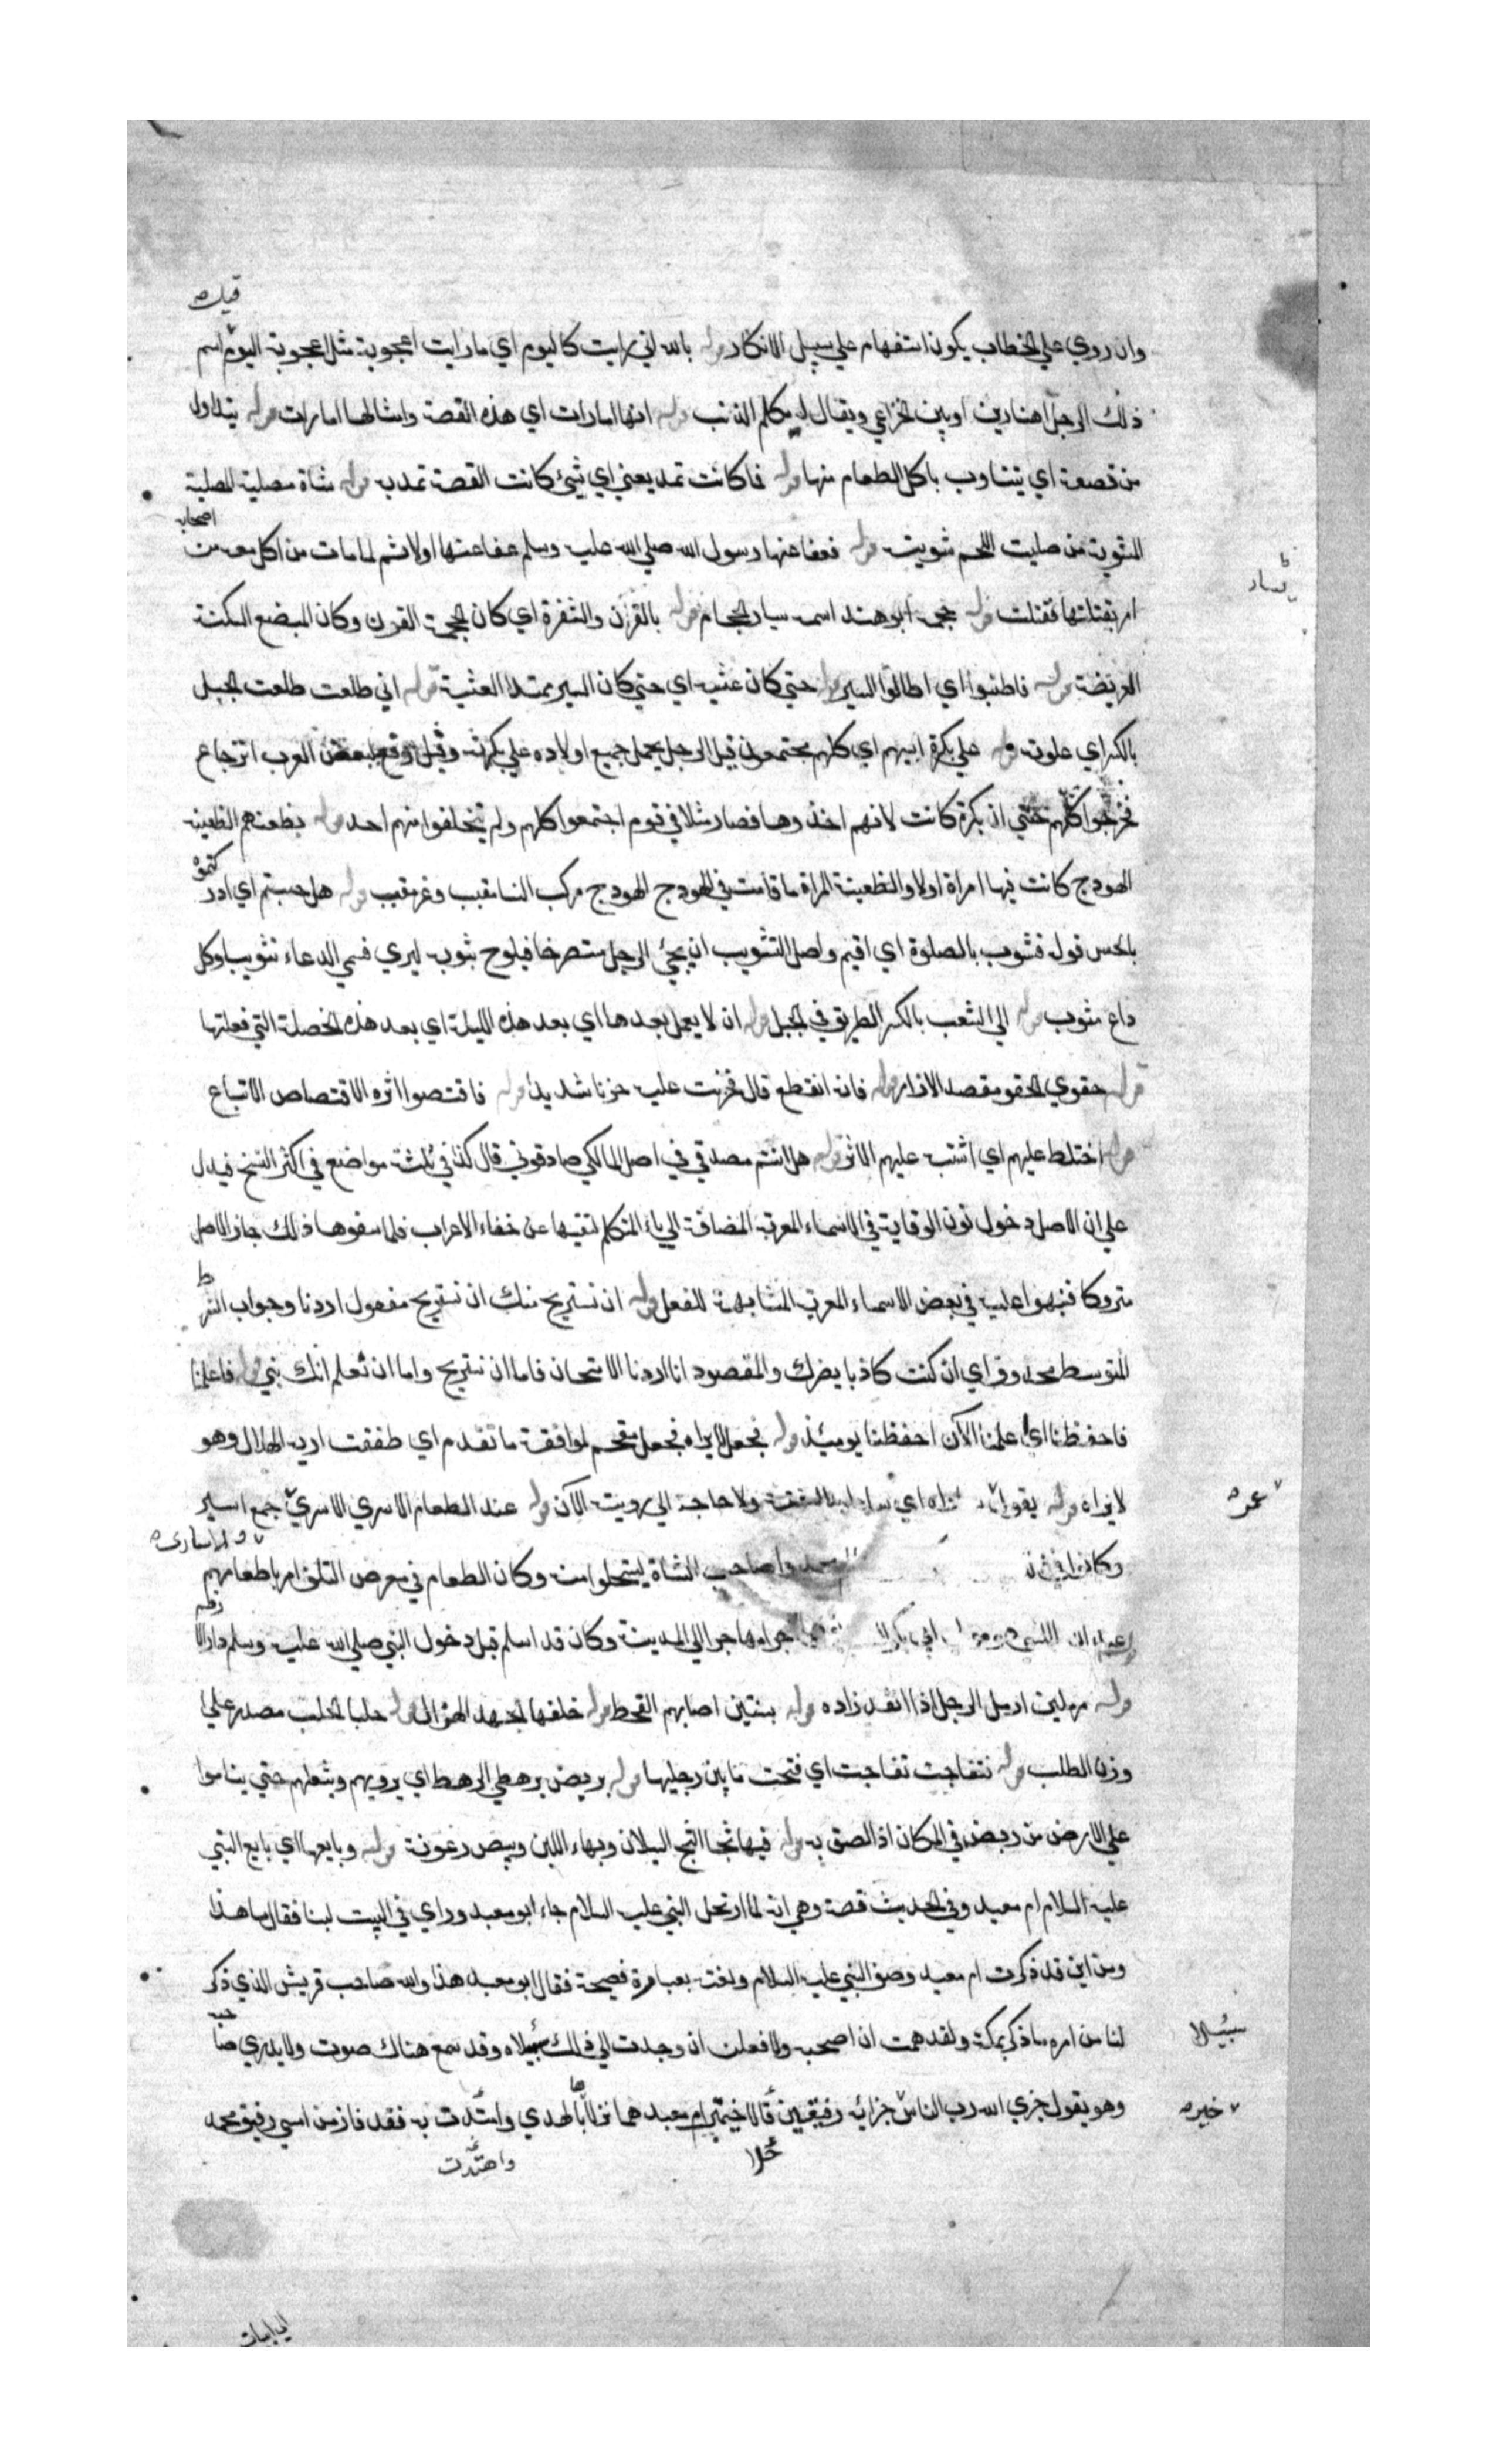 قيل
وان روي علي الخطاب يكون استفهام علي سبيل الانكار قوله بالله اني رايت كاليوم اي ما رايت اعجوبة مثل عجوبة اليوم اسم
ذلك الرجل اهنادبن اوبين الخزاعي ويقال له مكلم الذئب قوله انها امارات اي هذه القصة وامثالها امارات قوله يتداول
من قصعة اي يتناوب باكل الطعام منها قوله فما كانت تمد يعني اي شئ كانت القصة تمد به قوله شاة مصلية المصلية
المشوية من صليت اللحم شويته قوله فعفا عنها رسول الله صلي الله عليه وسلم عفا عنها اولا ثم لما مات من اكل معه من
اصحابه
امر بقتلها فقتلت قوله حجمه ابو هند اسمه سيار الحجام قوله بالقرن والشفرة اي كان المحجمة القرن وكان المبضع السكينة
يسار
العريضة قوله فاطنبوا اي اطالوا السير قوله حتي كان عشية اي حتي كان السير ممتدا العشية قوله اني طلعت طلعت الجبل
بالكسر اي علوته قوله علي بكرة ابيهم اي كلهم مجتمعون قيل الرجل يحمل جميع اولاده علي بكرته وقيل وقع لبعض العرب انزجاع
فخرجوا كلهم حتي ان بكرة كانت لابيهم اخذوها فصار مثلا في قوم اجتمعوا كلهم ولم يتخلفوا منهم احد قوله بظعنهم الظعينة
الهودج كانت فيها امراة اولا والظعينة المراة ما دامت في الهودج الهودج مركب النسا مقبب وغير مقبب قوله هل حسستم اي ادر
كتموه
بالحس قوله فثوب بالصلوة اي اقيم واصل التثويب ان يجئ الرجل مستصرخا فيلوح بثوبه ليري فسمي الدعاء تثويبا وكل
داع مثوب قوله الي الشعب بالكسر الطريق في الجبل قوله ان لا يعمل بعدها اي بعد هذه الليلة اي بعد هذه الخصلة التي فعلتها
قوله حقوي الحقو مقصد الازار قوله فان انقطع قال فحزنت عليه حزنا شديدا قوله فاقتصوا اثره الاقتصاص الاتباع
قوله اختلط عليهم اي اشتبه عليهم الاثر قوله هل انتم مصدقي في اصل المالكي صادقوني قال كذا في ثلثة مواضع في اكثر النسخ فيدل
علي ان الاصل دخول نون الوقاية في الاسماء المعربة المضافة الي ياء المتكلم لتقيها عن خفاء الاعراب فلما منعوها ذلك جاز الاصل
متروكا فنبهوا عليه في بعض الاسماء المعربة المشابهة للفعل قوله ان نستريح منك ان نستريح مفعول اردنا وجواب الشر
ط
المتوسط محذوف اي ان كنت كاذبا يضرك والمقصود انا اردنا الامتحان فاما ان نستريح واما ان نعلم انك نبي قوله فاعلمنا
فاحفظنا اي اعلمنا الآن احفظنا يومئذ قوله فجعل لا يراه فجعل مقحم لموافقة ما تقدم اي طفقت اريه الهلال وهو
لايراه قوله يقول ولا حاجة الي رويته الآن قوله عند الطعام الاسري الاسري جمع اسير
عمره
والاساري
وكانوا صاحب الشاة ليستحلوا منه وكان الطعام في معرض التلف امر باطعامهم
ابي بكر مهاجرا الي المدينة وكان قد اسلم قبل دخول النبي صلي الله عليه وسلم دار الا
رقم
قوله مرملين ارمل الرجل اذا انفد زاده قوله مسنتين اصابهم القحط قوله خلفها الجهد الهزال قوله حلبا الحلب مصدر علي
وزن الطلب قوله فتفاجت تفاجت اي فتحت ما بين رجليها قوله يربض الرهط اي يرويهم ويثقلهم حتي يناموا
علي الارض من ربض في المكان اذا لصق به قوله فيها ثجا الثج السيلان وبهاء اللبن وبيص رغوته قوله وبايعها اي بايع النبي
عليه السلام ام معبد وفي الحديث قصة وهي انه لما ارتحل النبي عليه السلام جاء ابو معبد وراي في البيت لبنا فقال ما هذا
ومن اين قد ذكرت ام معبد وصف النبي عليه السلام ونعته بعبارة فصيحة فقال ابو معبد هذا والله صاحب قريش الذي ذكر
لنا من امره ما ذكر بمكة ولقد هممت ان اصحبه ولافعلن ان وجدت الي ذلك سبيلا وقد سمع هناك صوت ولا يدري صا
سبيلا
حبه
وهو يقول جزي الله رب الناس جزائه رفيقين قالا خيمتي ام معبد هما نزلاها بالهدي واهتدت به فقد فاز من امسي رفيق محمد
خيره
حلا
واهتدت